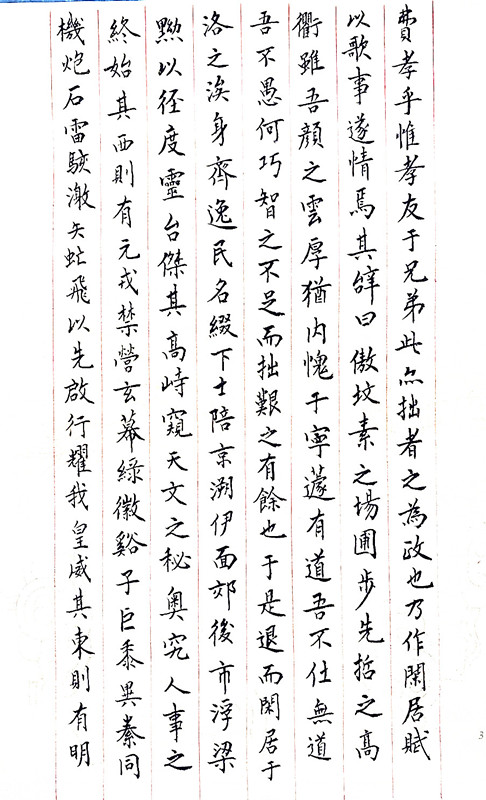 費孝乎惟孝友于兄弟此亦拙者之為政也乃作閑居賦
以歌事遂情焉其辭曰傲坟素之場圃步先哲之高
衢雖吾顏之雲厚猶内愧于寧蘧有道吾不仕無道
吾不愚何巧智之不足而拙艱之有餘也于是退而閑居于
洛之涘身齊逸民名綴下士陪京溯伊面郊後市浮梁
黝以徑度靈台傑其高峙窺天文之秘奧究人事之
終始其西則有元戎禁營玄幕綠徽谿子巨黍異絭同
機炮石雷駭激矢虻飛以先啟行耀我皇威其東則有明
3